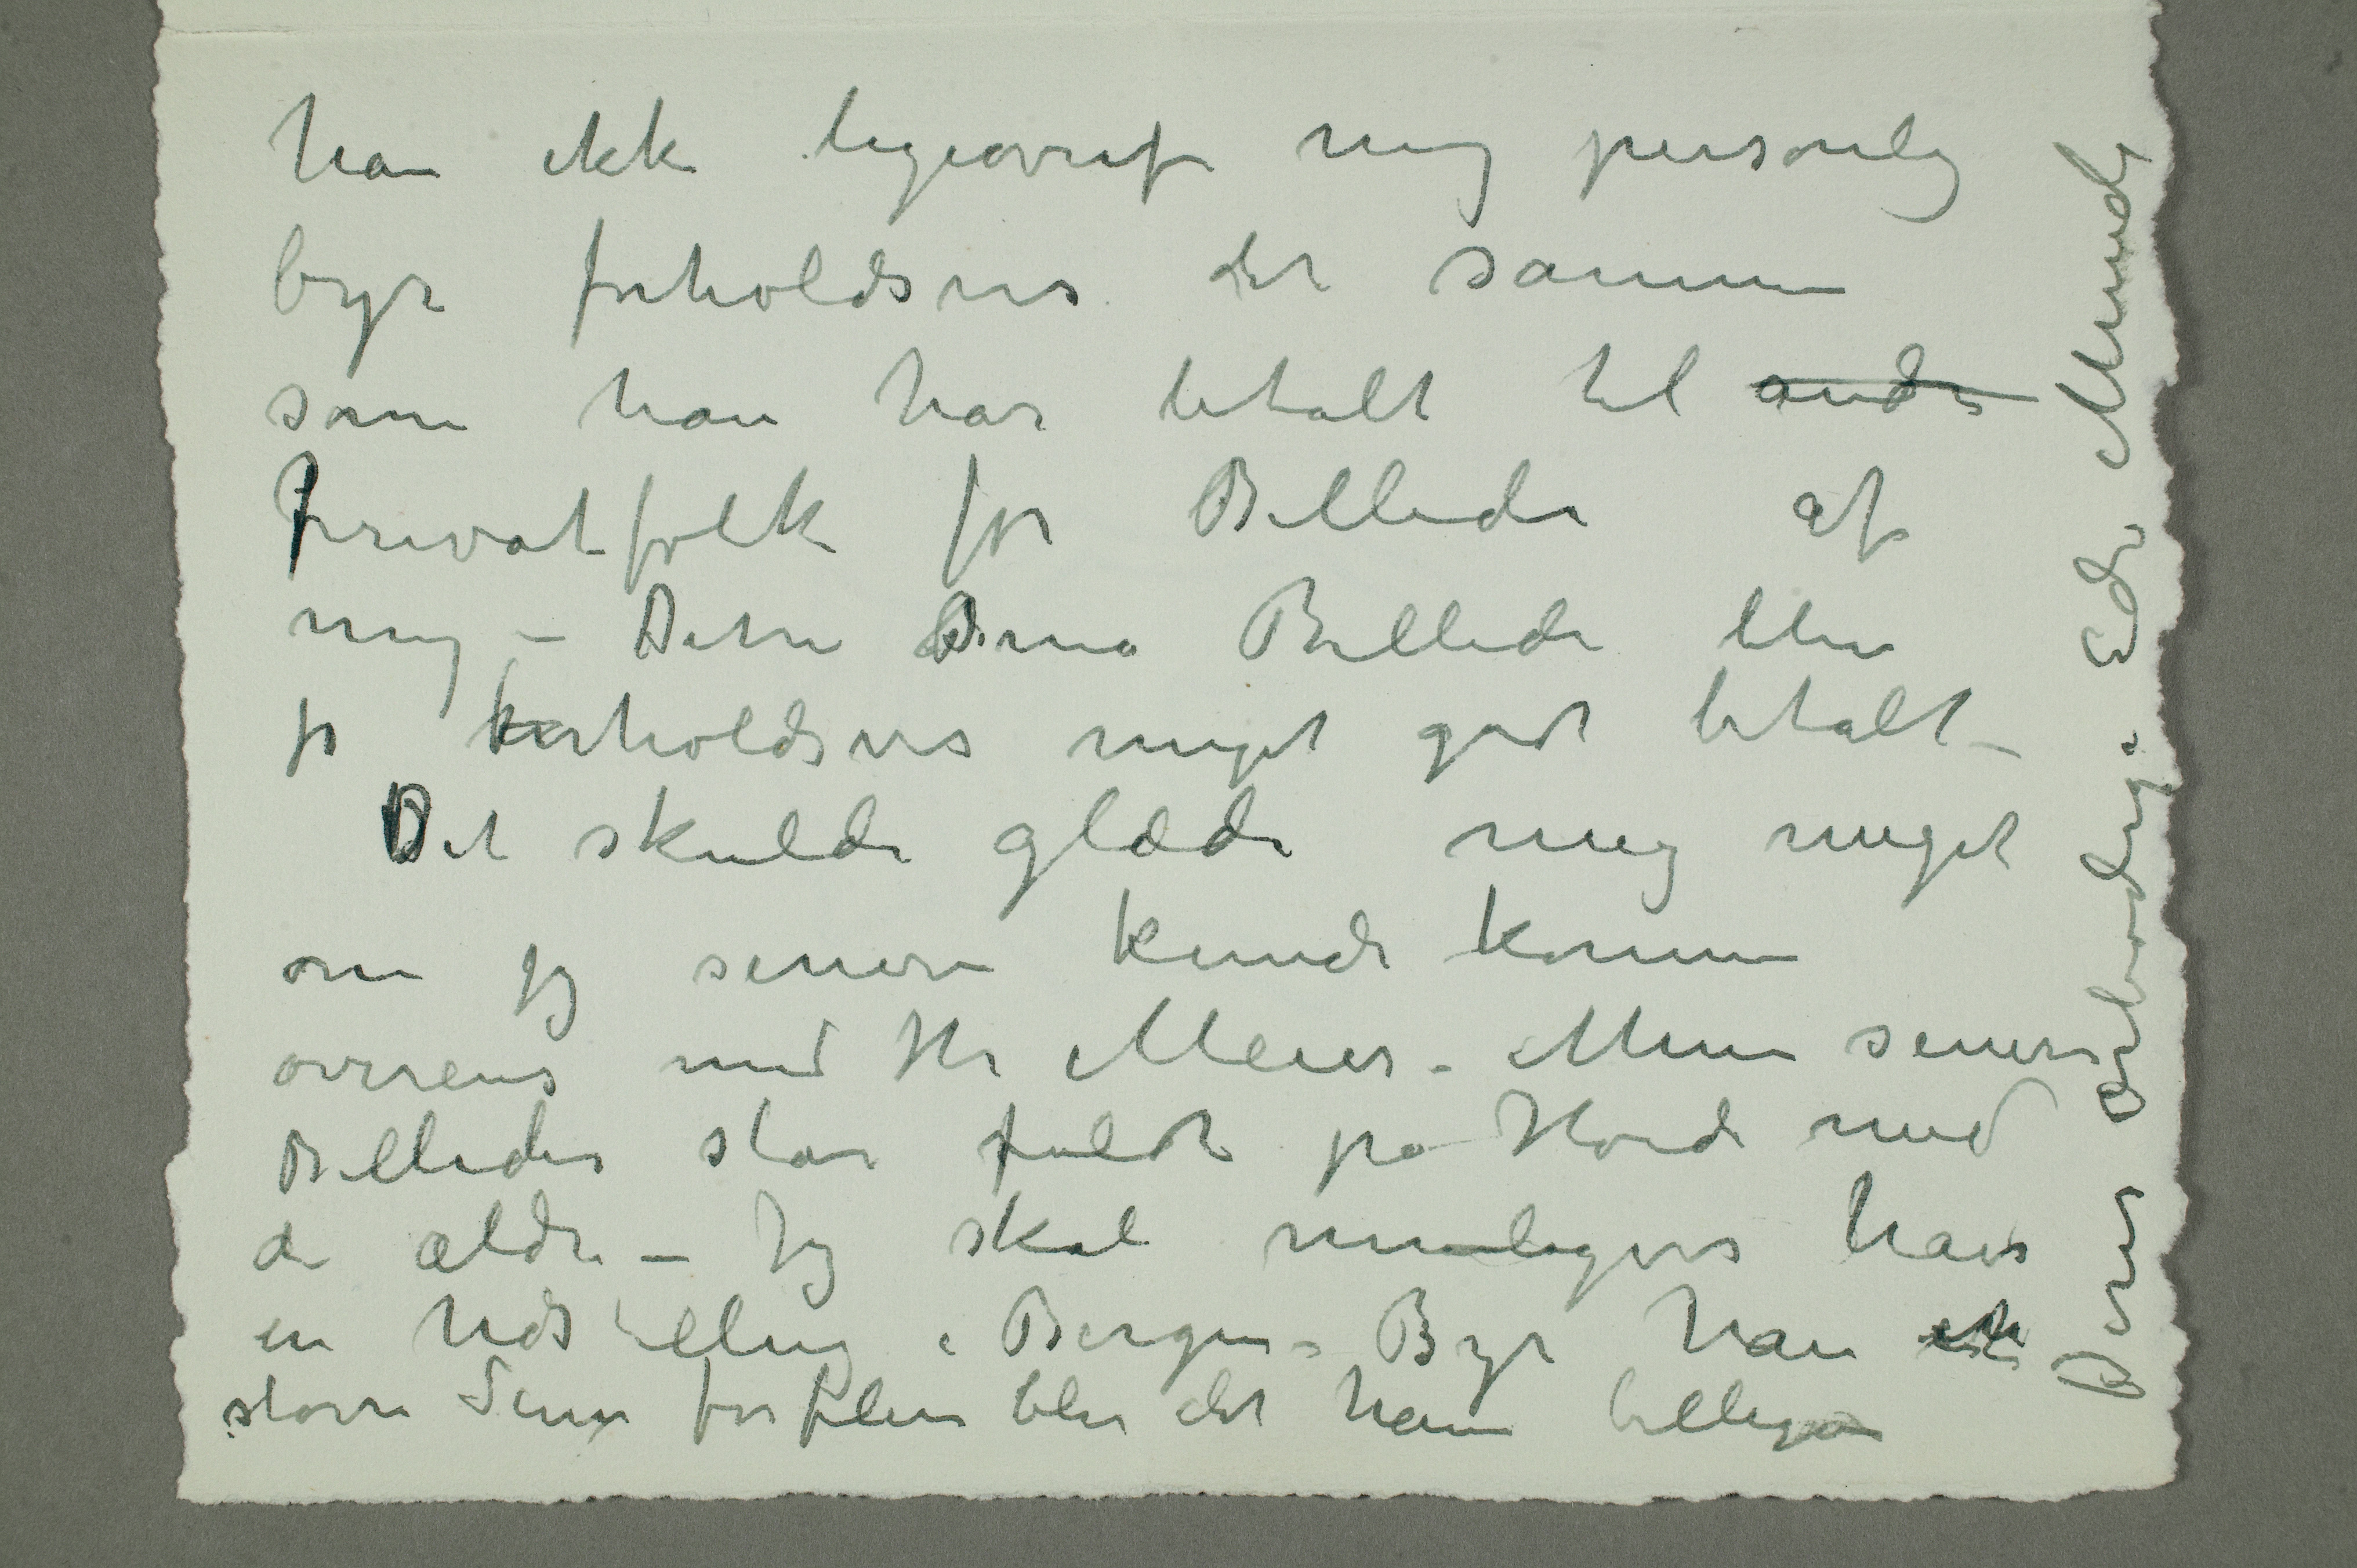 han ikke ligeoverfor mig personlig
byr forholdsvis det samme
som han har betalt til andre
Privatfolk for Billeder af
mig – Dette små Billede blev
jo forholdsvis meget godt betalt –
Det skulde glæde mig meget
om jeg senere kunde komme
overens med Hr Meier – Mine senere
Billeder står fuldt på Høide med
de ældre – Jeg skal muligvis have
en Udstilling i Bergen – Byr han en
større Sum for flere blir det ham billigere
Deres ærbødige Edv Munch